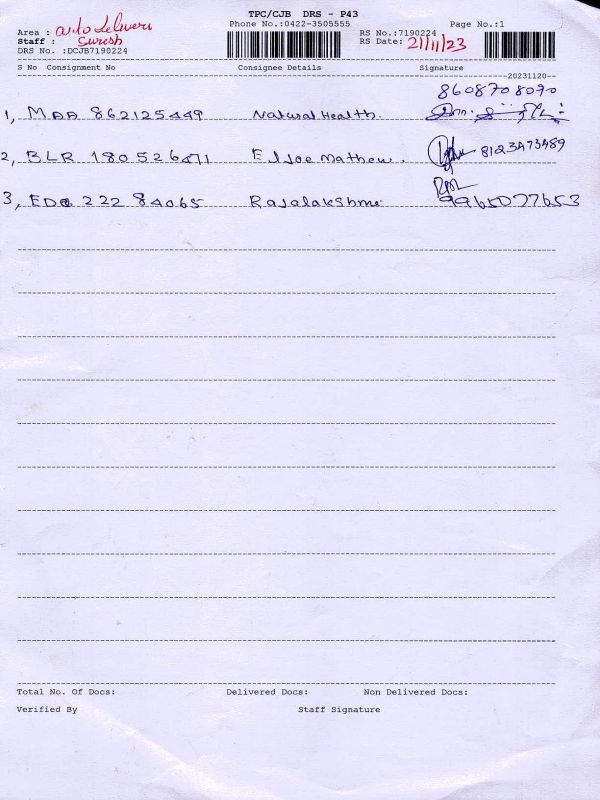 TPC/CJB DRS - P43
Phone No.:0422-3505555 Page No.:1
Area : auto Deliveri
Staff : Suresh
DRS No. :DCJB7190224
RS No.:7190224
RS Date: 21/11/23
S No Consignment No Consignee Details Signature
20231120
8608708090
1, MAA 862125449 Natural Health.
2, BLR 180526471 Eljoe Mathew. 8123473489
3, EDQ 222 84065 Rajalakshmi 9965077653
Total No. Of Docs: Delivered Docs: Non Delivered Docs:
Verified By Staff Signature